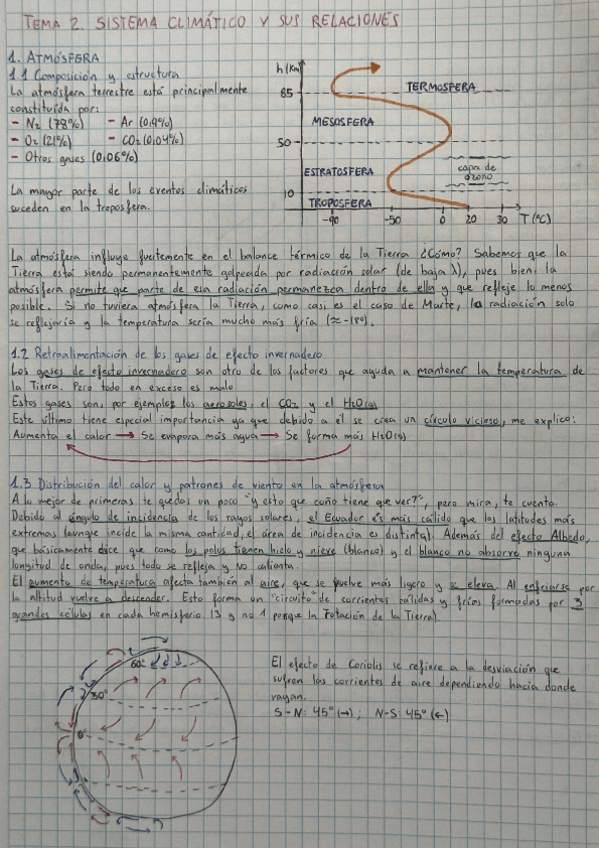 TEMA 2. SISTEMA CLIMÁTICO Y SUS RELACIONES
1. ATMÓSFERA
1.1 Composición y estructura
La atmósfera terrestre está principalmente
constituída por:
- N₂ (78%) - Ar (0,9%)
- O₂ (21%) - CO₂ (0,04%)
- Otros gases (0,06%)
La mayor parte de los eventos climáticos
suceden en la troposfera.
h (Km)
85
50
10
TERMOSFERA
MESOSFERA
ESTRATOSFERA
capa de
ozono
TROPOSFERA
-90 -50 0 20 30 T (°C)
La atmósfera influye fuertemente en el balance térmico de la Tierra ¿Cómo? Sabemos que la
Tierra está siendo permanentemente golpeada por radiación solar (de baja λ), pues bien, la
atmósfera permite que parte de esa radiación permanezca dentro de ella y que refleje lo menos
posible. Si no tuviera atmósfera la Tierra, como casi es el caso de Marte, la radiación solo
se reflejaría y la temperatura sería mucho más fría (≈ -18º).
1.2 Retroalimentación de los gases de efecto invernadero
Los gases de efecto invernadero son otro de los factores que ayuda a mantener la temperatura de
la Tierra. Pero todo en exceso es malo.
Estos gases son, por ejemplo: los aerosoles, el CO₂ y el H₂O(g)
Este último tiene especial importancia ya que debido a él se crea un círculo vicioso, me explico:
Aumenta el calor → Se evapora más agua → Se forma más H₂O(g)
1.3 Distribución del calor y patrones de viento en la atmósfera
A lo mejor de primeras te quedas un poco "y esto que coño tiene que ver?", pero mira, te cuento.
Debido al ángulo de incidencia de los rayos solares, el Ecuador es más cálido que las latitudes más
extremas (aunque incide la misma cantidad, el área de incidencia es distinta). Además del efecto Albedo,
que básicamente dice que como los polos tienen hielo y nieve (blanco) y el blanco no absorve ninguna
longitud de onda, pues todo se refleja y no calienta.
El aumento de temperatura afecta también al aire, que se vuelve más ligero y se eleva. Al enfriarse por
la altitud vuelve a descender. Esto forma un "circuito" de corrientes cálidas y frías formadas por 3
grandes células en cada hemisferio (3 y no 1 porque la Rotación de la Tierra).
60º
30º
0º
El efecto de Coriolis se refiere a la desviación que
sufren las corrientes de aire dependiendo hacia donde
vayan.
S-N: 45º (→) ; N-S: 45º (←)